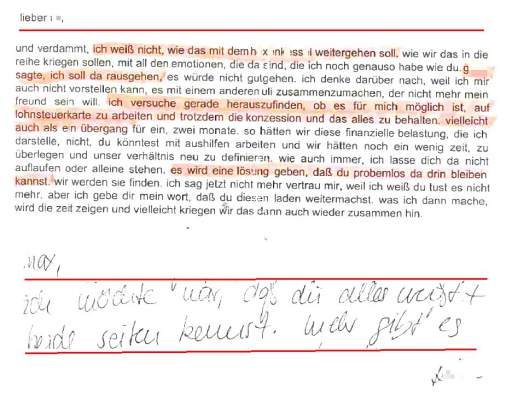 lieber
und verdammt, ich weiß nicht, wie das mit dem weitergehen soll. wie wir das in die
reihe kriegen sollen, mit all den emotionen, die da sind, die ich noch genauso habe wie du.
sagte, ich soll da rausgehen, es würde nicht gutgehen. ich denke darüber nach, weil ich mir
auch nicht vorstellen kann, es mit einem anderen uli zusammenzumachen, der nicht mehr mein
freund sein will. ich versuche gerade herauszufinden, ob es für mich möglich ist, auf
lohnsteuerkarte zu arbeiten und trotzdem die konzession und das alles zu behalten. vielleicht
auch als ein übergang für ein, zwei monate. so hätten wir diese finanzielle belastung, die ich
darstelle, nicht, du könntest mit aushilfen arbeiten und wir hätten noch ein wenig zeit, zu
überlegen und unser verhältnis neu zu definieren. wie auch immer, ich lasse dich da nicht
auflaufen oder alleine stehen. es wird eine lösung geben, daß du probemlos da drin bleiben
kannst. wir werden sie finden. ich sag jetzt nicht mehr vertrau mir, weil ich weiß du tust es nicht
mehr. aber ich gebe dir mein wort, daß du diesen laden weitermachst. was ich dann mache,
wird die zeit zeigen und vielleicht kriegen wir das dann auch wieder zusammen hin.
ich möchte nur, daß du alles weißt +
beide seiten kennst. mehr gibt es